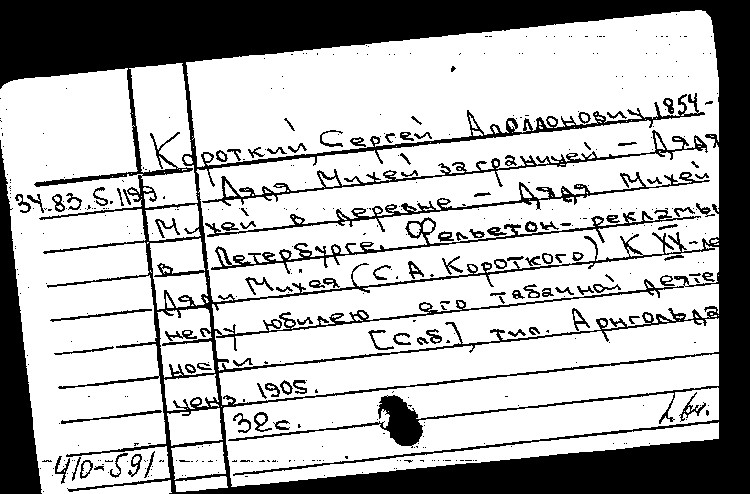 Короткий, Сергей Аполлонович, 1854-
34.83.5.1199. Дядя Михей заграницей. – Дядя
Михей в деревне. – Дядя Михей
в Петербурге. Фельетон-рекламы
Дяди Михея (С.А. Короткого). К XX-ле
нему юбилею его табачной деятел
ности. [Спб.], тип. Арнгольда
ценз. 1905.
32с.
410-591